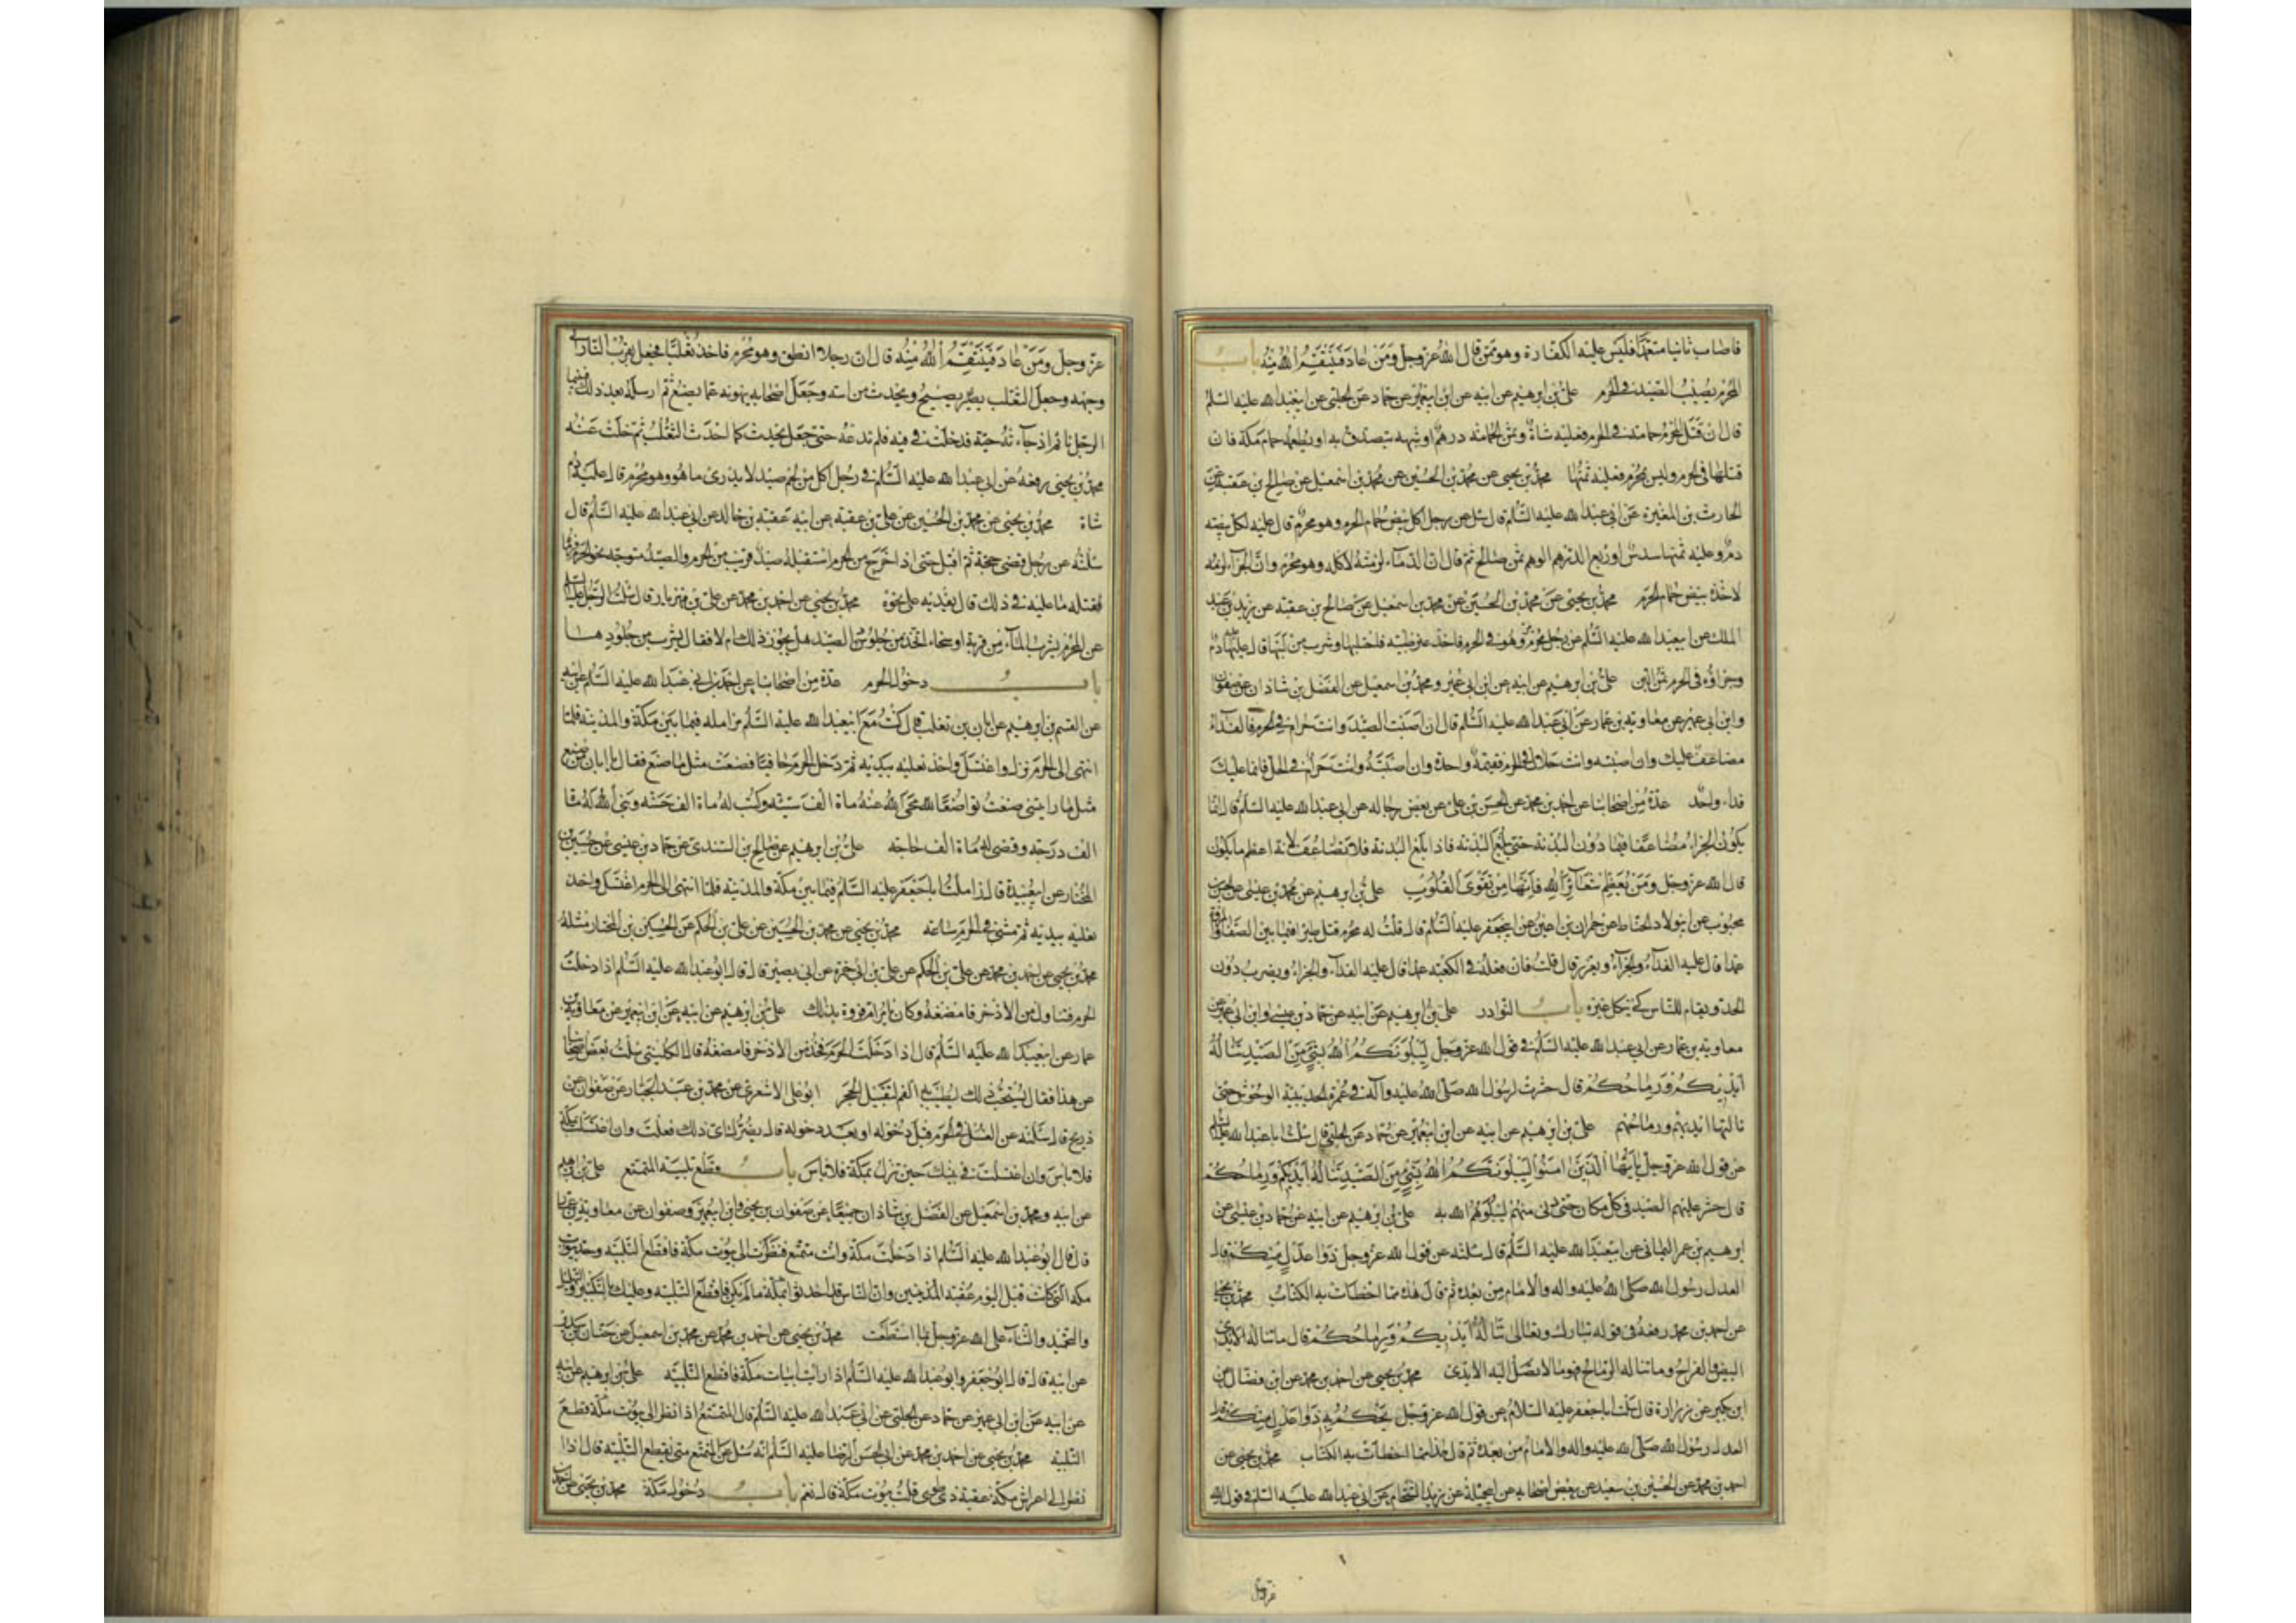 فاصاب ثانيا متعمدا فليس عليه الكفارة وهو ممن قال الله عز وجل وَمَنْ عَادَ فَيَنْتَقِمُ اللهُ مِنْهُ باب
المحرم يصيب الصيد في الحرم علي بن ابرهيم عن ابيه عن ابن ابي عمير عن حماد عن الحلبي عن ابي عبد الله عليه السلم
قال ان قتل المحرم حمامة في الحرم فعليه شاة وثمن الحمامة درهم او شبهه يتصدق به او يطعمه حمام مكة فان
قتلها في الحرم وليس بمحرم فعليه ثمنها محمد بن يحيى عن محمد بن الحسين عن محمد بن اسمعيل عن صالح بن عقبة عن
الحارث بن المغيرة عن ابي عبد الله عليه السلم قال سئل عن رجل اكل بيض حمام الحرم وهو محرم قال عليه لكل بيضه
دم وعليه ثمنها سدس او ربع الدرهم الوهم من صالح ثم قال ان الدماء لزمته لاكله وهو محرم وان الجزاء لزمه
لاخذه بيض حمام الحرم محمد بن يحيى عن محمد بن الحسين عن محمد بن اسمعيل عن صالح بن عقبة عن يزيد بن عبد
الملك عن ابي عبد الله عليه السلم عن رجل محرم مر وهو في الحرم فاخذ عنز ظبية فاحتلبها وشرب من لبنها قال عليه دم
وجزاؤه في الحرم ثمن اللبن علي بن ابرهيم عن ابيه عن ابن ابي عمير ومحمد بن اسمعيل عن الفضل بن شاذان عن صفوان
وابن ابي عمير عن معاوية بن عمار عن ابي عبد الله عليه السلم قال ان اصبت الصيد وانت حرام في الحرم فالفداء
مضاعف عليك وان اصبته وانت حلال في الحرم فقيمة واحدة وان اصبته وانت حرام في الحل فانما عليك
فداء واحد عدة من اصحابنا عن احمد بن محمد عن الحسن بن علي عن بعض رجاله عن ابي عبد الله عليه السلم قال انما
يكون الجزاء مضاعفا فيما دون البدنة حتى يبلغ البدنة فاذا بلغ البدنة فلا تضاعف لانه اعظم ما يكون
قال الله عز وجل وَمَنْ يُعَظِّمْ شَعَائِرَ اللهِ فَاِنَّهَا مِنْ تَقْوَى الْقُلُوبِ علي بن ابرهيم عن محمد بن عيسى عن الحسن بن
محبوب عن ابي ولاد الحناط عن حمران بن اعين عن ابي جعفر عليه السلم قال قلت له محرم قتل طيرا فيما بين الصفا والمروة
عمدا قال عليه الفداء والجزاء ويعزر قال قلت فان فعله في الكعبة عمدا قال عليه الفداء والجزاء ويضرب دون
الحد ويقام للناس كي ينكل غيره باب النوادر علي بن ابرهيم عن ابيه عن حماد بن عيسى وابن ابي عمير عن
معاوية بن عمار عن ابي عبد الله عليه السلم في قول الله عز وجل لَيَبْلُوَنَّكُمُ اللهُ بِشَيْءٍ مِنَ الصَّيْدِ تَنَالُهُ
اَيْدِيكُمْ وَرِمَاحُكُمْ قال حشرت لرسول الله صلى الله عليه وآله في عمرة الحديبية الوحوش حتى
نالتها ايديهم ورماحهم علي بن ابرهيم عن ابيه عن ابن ابي عمير عن حماد عن الحلبي قال سئلت ابا عبد الله عليه السلم
عن قول الله عز وجل يَا اَيُّهَا الَّذِينَ امَنُوا لَيَبْلُوَنَّكُمُ اللهُ بِشَيْءٍ مِنَ الصَّيْدِ تَنَالُهُ اَيْدِيكُمْ وَرِمَاحُكُمْ
قال حشر عليهم الصيد في كل مكان حتى دنى منهم ليبلوهم الله به علي بن ابرهيم عن ابيه عن حماد بن عيسى عن
ابرهيم بن عمر اليماني عن ابي عبد الله عليه السلم قال سئلته عن قول الله عز وجل ذَوَا عَدْلٍ مِنْكُمْ قال
العدل رسول الله صلى الله عليه واله والامام من بعده ثم قال هذا مما اخطأت به الكتاب محمد بن يحيى
عن احمد بن محمد رفعه في قوله تبارك وتعالى تَنَالُهُ اَيْدِيكُمْ وَرِمَاحُكُمْ قال ما تناله الايدي
البيض والفراخ وما تناله الرماح فهو ما لا تصل اليه الايدى محمد بن يحيى عن احمد بن محمد عن ابن فضال عن
ابن بكير عن زرارة قال سئلت ابا جعفر عليه السلام عن قول الله عز وجل يَحْكُمُ بِهِ ذَوَا عَدْلٍ مِنْكُمْ قال
العدل رسول الله صلى الله عليه واله والامام من بعده ثم قال هذا مما اخطات به الكتاب محمد بن يحيى عن
احمد بن محمد عن الحسين بن سعيد عن بعض اصحابه عن ابي جميلة عن زيد الشحام عن ابي عبد الله عليه السلم في قول الله
عز وجل
عز وجل وَمَنْ عَادَ فَيَنْتَقِمُ اللهُ مِنْهُ قال ان رجلا انطلق وهو محرم فاخذ ثعلبا فجعل يقرب النار الى
وجهه وجعل الثعلب يصيح ويحدث من استه وجعل اصحابه ينهونه عما يصنع ثم ارسله بعد ذلك فبينما
الرجل نائم اذ جاءته حية فدخلت في فيه فلم تدعه حتى جعل يحدث كما احدث الثعلب ثم خلت عنه
محمد بن يحيى رفعه عن ابي عبد الله عليه السلم في رجل اكل من لحم صيد لا يدرى ما هو وهو محرم قال عليه دم
شاة محمد بن يحيى عن محمد بن الحسين عن علي بن عقبة عن ابيه عقبة بن خالد عن ابي عبد الله عليه السلم قال
سئلته عن رجل قضى حجة ثم اقبل حتى اذا خرج من الحرم استقبله صيد قريب من الحرم والصيد متوجه نحو الحرم فرماه
فقتله ما عليه في ذلك قال يفديه على نحوه محمد بن يحيى عن احمد بن محمد عن علي بن مهزيار قال سئلت الرجل عليه السلم
عن المحرم يشرب الماء من قربة او سقاء اتخذ من جلود الصيد هل يجوز ذلك ام لا فقال يشرب من جلودها
باب دخول الحرم عدة من اصحابنا عن احمد بن ابي عبد الله عليه السلم عن ابيه
عن القسم بن ابرهيم عن ابان بن تغلب قال كنت مع ابي عبد الله عليه السلم مزامله فيما بين مكة والمدينة فلما
انتهى الى الحرم نزل واغتسل واخذ نعليه بيديه ثم دخل الحرم حافيا فصنعت مثل ما صنع فقال يا ابان من صنع
مثل ما رايتني صنعت تواضعا لله محى الله عنه ماة الف سيئة وكتب له ماة الف حسنة وبنى الله له ماة
الف درجة وقضى له ماة الف حاجة علي بن ابرهيم عن صالح بن السندي عن حماد بن عيسى عن حسين بن
المختار عن ابي عبيدة قال زاملت ابا جعفر عليه السلم فيما بين مكة والمدينة فلما انتهى الى الحرم اغتسل واخذ
نعليه بيديه ثم مشى في الحرم ساعة محمد بن يحيى عن محمد بن الحسين عن علي بن الحكم عن الحسين بن المختار مثله
محمد بن يحيى عن احمد بن محمد عن علي بن الحكم عن علي بن ابي حمزة عن ابي بصير قال قال ابو عبد الله عليه السلم اذا دخلت
الحرم فتناول من الاذخر فامضغه وكان يامر ام فروة بذلك علي بن ابرهيم عن ابيه عن ابن ابي عمير عن معاوية بن
عمار عن ابي عبد الله عليه السلم قال اذا دخلت الحرم فخذ من الاذخر فامضغه قال الكليني سئلت بعض اصحابنا
عن هذا فقال يستحب ذلك ليطيب به الفم لتقبيل الحجر ابو علي الاشعري عن محمد بن عبد الجبار عن صفوان عن
ذريح قال سئلته عن الغسل في الحرم قبل دخوله او بعد دخوله قال لا يضرك اي ذلك فعلت وان اغتسلت بمكة
فلا باس وان اغتسلت في بيتك حين تنزل بمكة فلا باس باب قطع تلبية المتمتع علي بن ابرهيم
عن ابيه ومحمد بن اسمعيل عن الفضل بن شاذان جميعا عن صفوان بن يحيى وابن ابي عمير وصفوان عن معاوية بن عمار
قال قال ابو عبد الله عليه السلم اذا دخلت مكة وانت متمتع فنظرت الى بيوت مكة فاقطع التلبية وحد بيوت
مكة التي كانت قبل اليوم عقبة المدنيين وان الناس قد احدثوا بمكة ما لم يكن فاقطع التلبية وعليك بالتكبير والتهليل
والتحميد والثناء على الله عز وجل بما استطعت محمد بن يحيى عن احمد بن محمد عن محمد بن اسمعيل عن حنان بن سدير
عن ابيه قال قال ابو جعفر وابو عبد الله عليه السلم اذا رايت ابيات مكة فاقطع التلبية علي بن ابرهيم عن ابيه
عن ابيه عن ابن ابي عمير عن حماد عن الحلبي عن ابي عبد الله عليه السلم قال المتمتع اذا نظر الى بيوت مكة قطع
التلبية محمد بن يحيى عن احمد بن محمد عن ابي الحسن الرضا عليه السلم انه سئل عن المتمتع متى يقطع التلبية قال اذا
نظر الى اعراش مكة عقبة ذي طوى قلت بيوت مكة قال نعم باب دخول مكة محمد بن يحيى عن احمد